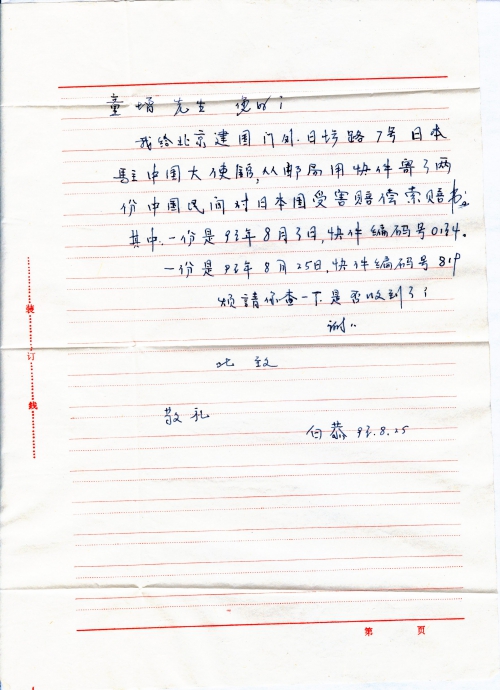 童増先生 您好！
我给北京建国门外日坛路7号日本
駐中国大使館，从邮局用快件寄了两
份中国民间对日本国受害赔偿索赔书。
其中：一份是93年8月3日，快件编码号0134。
一份是93年8月25日，快件编码号819
烦請你查一下是否收到了！
谢..
此致
敬礼
93.8.25
装
订
线
第 页